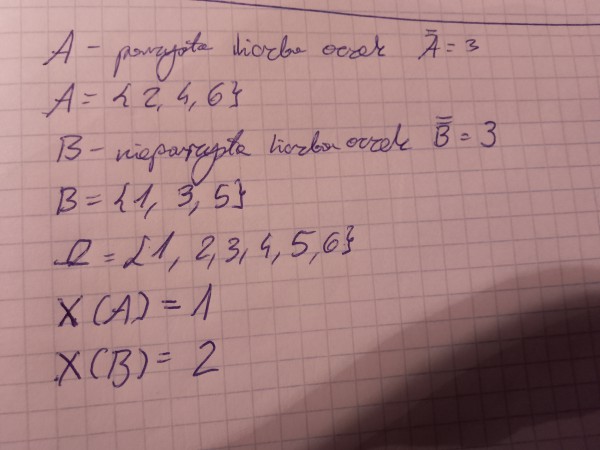 A - parzysta liczba oczek A̿ = 3
A = {2, 4, 6}
B - nieparzysta liczba oczek B̿ = 3
B = {1, 3, 5}
Ω = {1, 2, 3, 4, 5, 6}
X(A) = 1
X(B) = 2